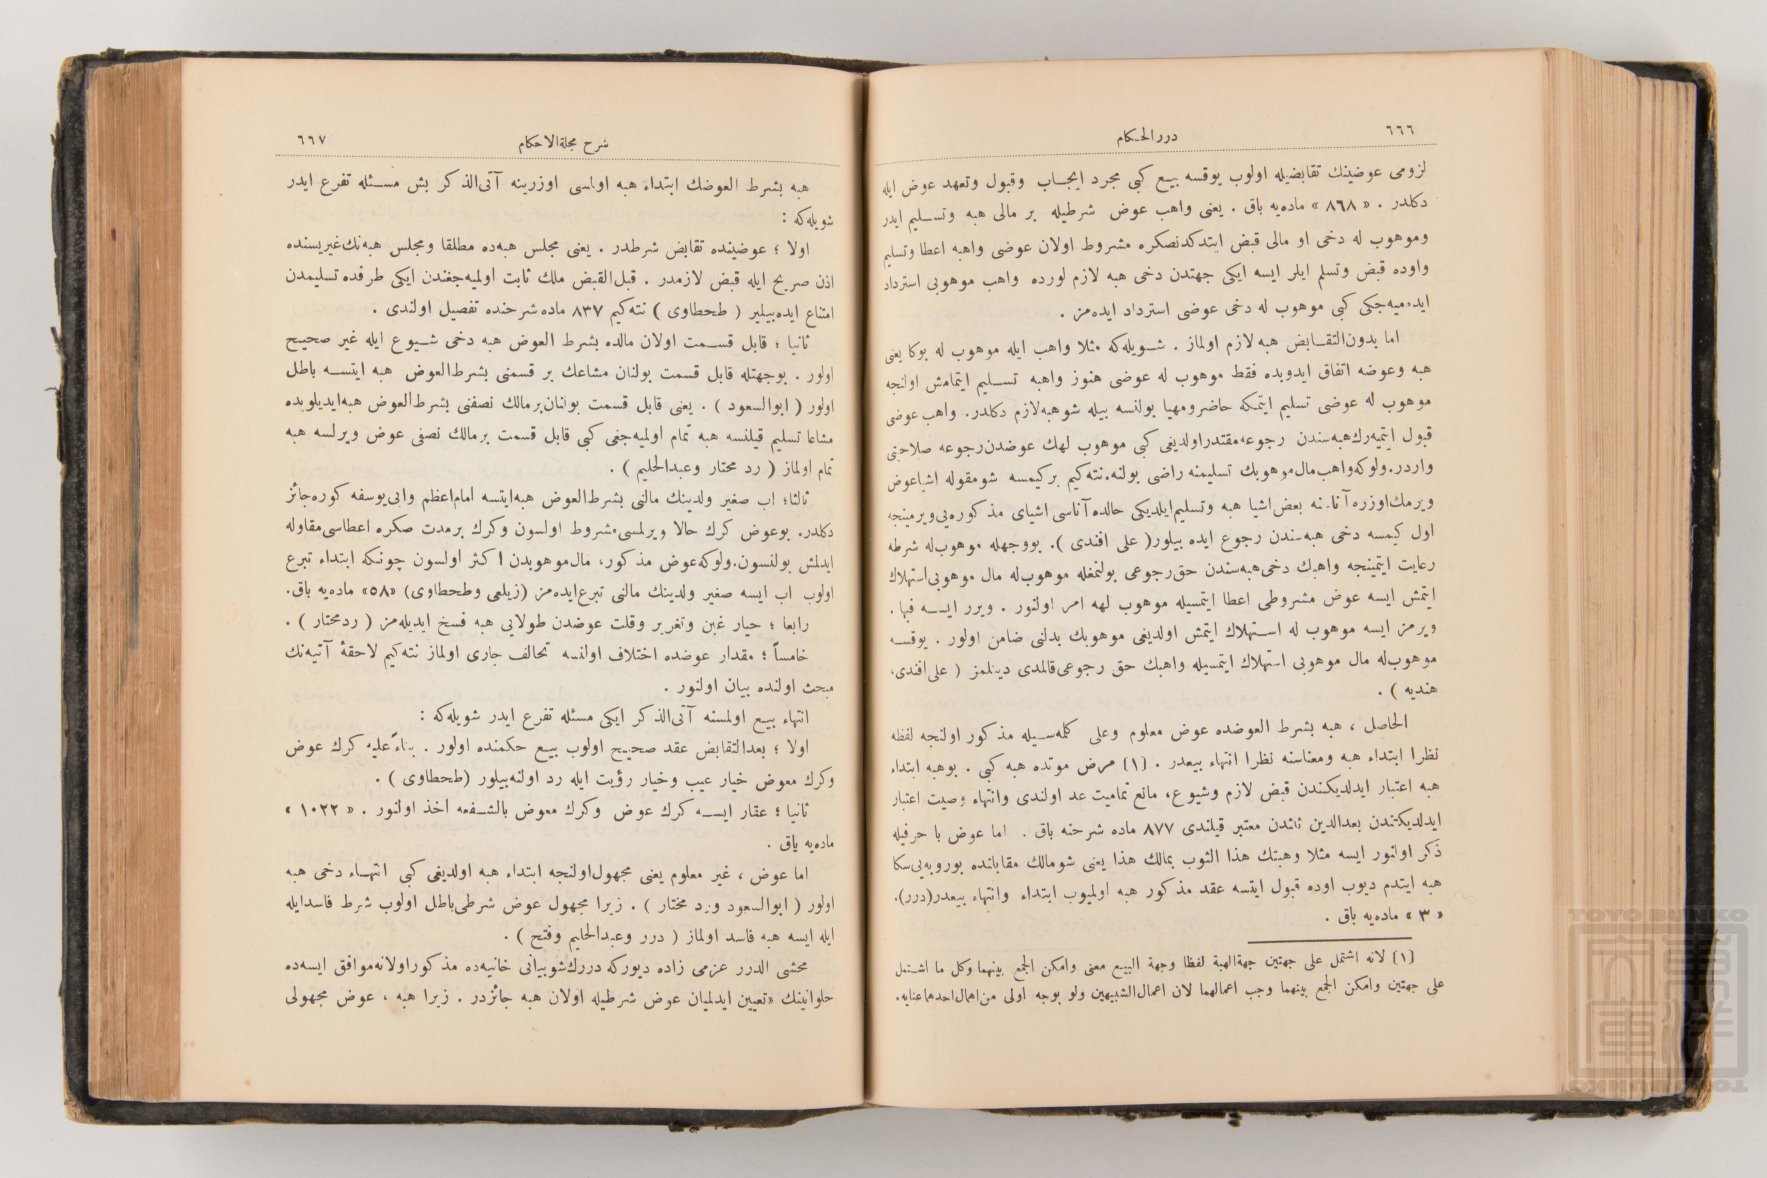 ٦٦٦
دررالحكام
لزومى عوضينك تقابضيله اولوب يوقسه بيع كبى مجرد ايجاب وقبول وتعهد عوض ايله
دكلدر . « ٨٦٨ » ماده‌يه باق . يعنى واهب عوض شرطيله بر مالى هبه وتسليم ايدر
وموهوب له دخى او مالى قبض ايتدكدنصكره مشروط اولان عوضى واهبه اعطا وتسليم
واوده قبض وتسلم ايلر ايسه ايكى جهتدن دخى هبه لازم لورده واهب موهوبى استرداد
ايده‌ميه‌جكى كبى موهوب له دخى عوضى استرداد ايده‌مز .
اما بدون‌التقابض هبه لازم اولماز . شويله‌كه مثلا واهب ايله موهوب له بوكا يعنى
هبه وعوضه اتفاق ايدوبده فقط موهوب له عوضى هنوز واهبه تسليم ايتمامش اولنجه
موهوب له عوضى تسليم ايتمكه حاضر ومهيا بولنسه بيله شو هبه لازم دكلدر. واهب عوضى
قبول ايتميه‌رك هبه‌سندن رجوعه مقتدر اولديغى كبى موهوب لهك عوضدن رجوعه صلاحيتى
واردر. ولوكه واهب مال موهوبك تسليمنه راضى بولنه. نته‌كيم بركيمسه شو مقوله اشيا عوض
ويرمك اوزره آناسنه بعض اشيا هبه وتسليم ايلديكى حالده آناسى اشياى مذكوره‌يى ويرمينجه
اول كيمسه دخى هبه‌سندن رجوع ايده بيلور( على افندى ). بووجهله موهوب‌له شرطه
رعايت ايتمينجه واهبك دخى هبه‌سندن حق رجوعى بولنمغله موهوب‌له مال موهوبى استهلاك
ايتمش ايسه عوض مشروطى اعطا ايتمسيله موهوب لهه امر اولنور . ويرر ايسه فبها .
ويرمز ايسه موهوب له استهلاك ايتمش اولديغى موهوبك بدلنى ضامن اولور . يوقسه
موهوب‌له مال موهوبى استهلاك ايتمسيله واهبك حق رجوعى قالمدى دينلمز ( على افندى،
هنديه ) .
الحاصل ، هبه بشرط العوضده عوض معلوم وعلى كلمه‌سيله مذكور اولنجه لفظه
نظرا ابتداء هبه ومعناسنه نظرا انتهاء بيعدر . [١] مرض موتده هبه كبى . بوهبه ابتداء
هبه اعتبار ايدلديكندن قبض لازم وشيوع، مانع تماميت عد اولندى وانتهاء وصيت اعتبار
ايدلديكندن بعدالدين ثلثدن معتبر قيلندى ٨٧٧ ماده شرحنه باق . اما عوض با حرفيله
ذكر اولنور ايسه مثلا وهبتك هذا الثوب بمالك هذا يعنى شومالك مقابلنده بوروبه‌يى سكا
هبه ايتدم ديوب اوده قبول ايتسه عقد مذكور هبه اولميوب ابتداء وانتهاء بيعدر(درر).
« ٣ » ماده‌يه باق .
[١] لانه اشتمل على جهتين جهةالهبة لفظا وجهة البيع معنى وامكن الجمع بينهما وكل ما اشتمل
على جهتين وامكن الجمع بينهما وجب اعمالهما لان اعمال‌الشبيهين ولو بوجه اولى من‌اهمال‌احدهما عنايه.
شرح مجلةالاحكام
٦٦٧
هبه بشرط العوضك ابتداء هبه اولمسى اوزرينه آتى‌الذكر بش مسئله تفرع ايدر
شويله‌كه :
اولا ؛ عوضينده تقابض شرطدر . يعنى مجلس هبه‌ده مطلقا ومجلس هبه‌نك غيريسنده
اذن صريح ايله قبض لازمدر . قبل‌القبض ملك ثابت اولميه‌جغندن ايكى طرفده تسليمدن
امتناع ايده‌بيلير ( طحطاوى ) نته‌كيم ٨٣٧ ماده شرحنده تفصيل اولندى .
ثانيا ؛ قابل قسمت اولان مالده بشرط العوض هبه دخى شيوع ايله غير صحيح
اولور . بوجهتله قابل قسمت بولنان مشاعك بر قسمنى بشرط‌العوض هبه ايتسه باطل
اولور ( ابوالسعود ) . يعنى قابل قسمت بولنان برمالك نصفنى بشرط‌العوض هبه ايديلوبده
مشاعا تسليم قيلنسه هبه تمام اولميه‌جغى كبى قابل قسمت برمالك نصفى عوض ويرلسه هبه
تمام اولماز ( رد محتار وعبدالحليم ) .
ثالثا؛ اب صغير ولدينك مالنى بشرط‌العوض هبه ايتسه امام‌اعظم وابى‌يوسفه كوره جائز
دكلدر. بوعوض كرك حالا ويرلمسى مشروط اولسون وكرك برمدت صكره اعطاسى مقاوله
ايدلمش بولنسون. ولوكه عوض مذكور، مال‌موهوبدن اكثر اولسون چونكه ابتداء تبرع
اولوب اب ايسه صغير ولدينك مالنى تبرع ايده‌مز (زيلعى وطحطاوى) «٥٨» ماده‌يه باق.
رابعا ؛ خيار غبن وتغرير وقلت عوضدن طولايى هبه فسخ ايديله‌مز ( ردمحتار ) .
خامساً ؛ مقدار عوضده اختلاف اولنسه تحالف جارى اولماز نته‌كيم لاحقۀ آتيه‌نك
مبحث اولنده بيان اولنور .
انتهاء بيع اولمسنه آتى‌الذكر ايكى مسئله تفرع ايدر شويله‌كه :
اولا ؛ بعدالتقابض عقد صحيح اولوب بيع حكمنده اولور . بناءً‌عليه كرك عوض
وكرك معوض خيار عيب وخيار رؤيت ايله رد اولنه‌بيلور (طحطاوى ) .
ثانيا ؛ عقار ايسه كرك عوض وكرك معوض بالشفعه اخذ اولنور . « ١٠٢٢ »
ماده‌يه باق .
اما عوض ، غير معلوم يعنى مجهول‌اولنجه ابتداء هبه اولديغى كبى انتهاء دخى هبه
اولور ( ابوالسعود ورد محتار ) . زيرا مجهول عوض شرطى باطل اولوب شرط فاسدايله
ايله ايسه هبه فاسد اولماز ( درر وعبدالحليم وفتح ) .
محشى الدرر عزمى زاده ديوركه دررك شو بيانى خانيه‌ده مذكور اولانه موافق ايسه‌ده
حلوانينك «تعيين ايدلميان عوض شرطيله اولان هبه جائزدر . زيرا هبه ، عوض مجهولى
TOYO BUNKO